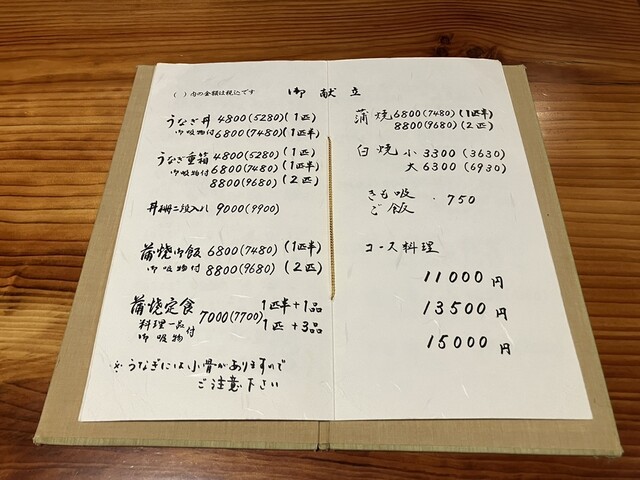 ( )内の金額は税込です
御献立
うなぎ丼 4800(5280)(1匹)
御吸物付 6800(7480)(1匹半)
うなぎ重箱 4800(5280)(1匹)
御吸物付 6800(7480)(1匹半)
8800(9680)(2匹)
丼柵二段入ル 9000(9900)
蒲焼御飯 6800(7480)(1匹半)
御吸物付 8800(9680)(2匹)
蒲焼定食 7000(7700) 1匹半+1品
料理一品付 1匹+3品
御吸物
※うなぎには小骨がありますので
ご注意下さい
蒲焼 6800(7480)(1匹半)
8800(9680)(2匹)
白焼 小 3300(3630)
大 6300(6930)
きも吸
ご飯 ・750
コース料理
11000円
13500円
15000円